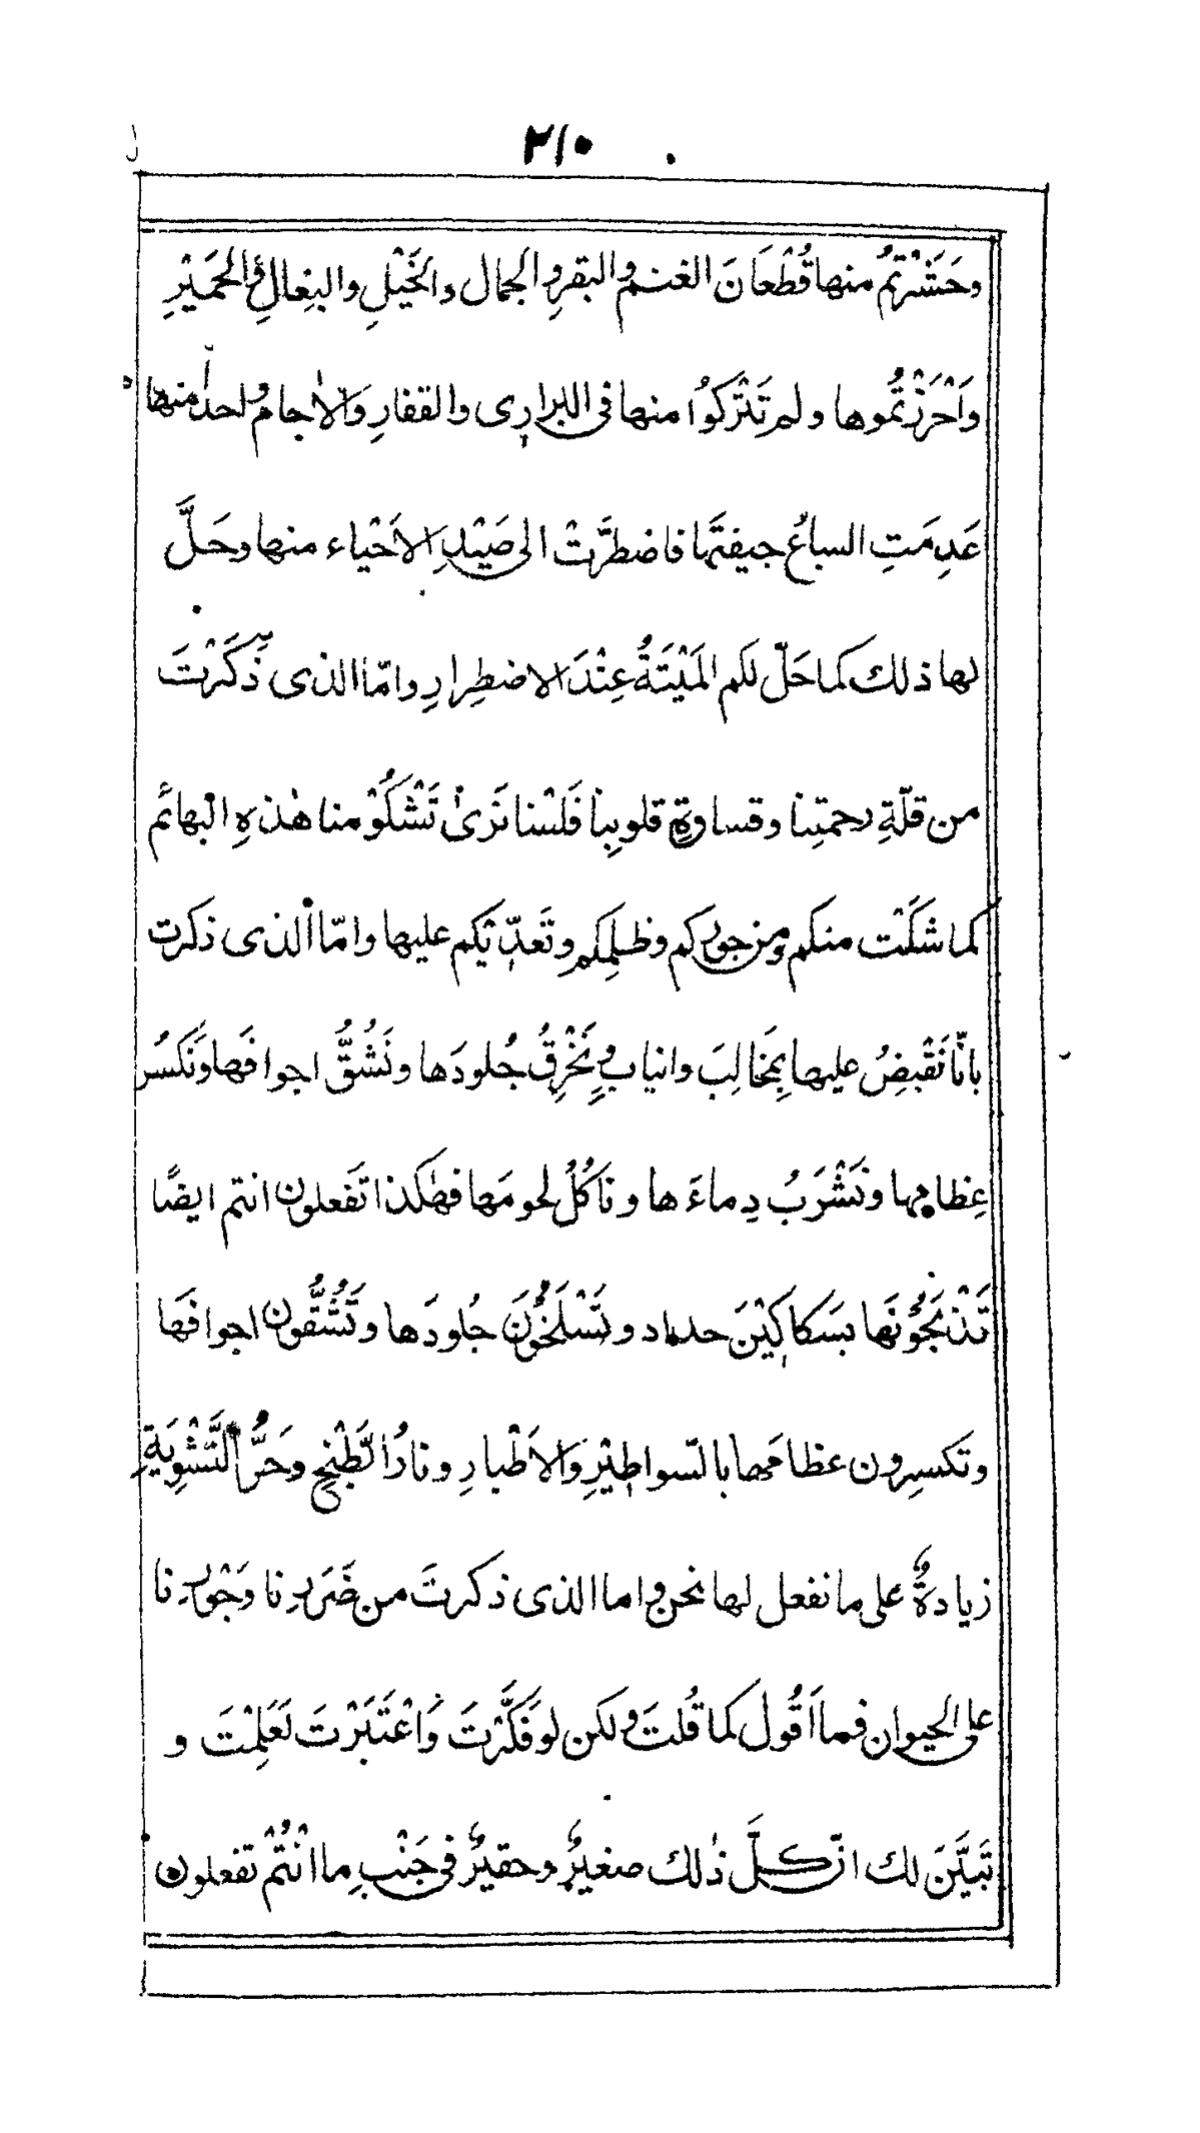 ٢١٠
وحَشَرْتُمْ منها قُطْعَانَ الغنم والبقرِ والجمال والخَيْلِ والبِغالِ والحَمَيْرِ
وَاَحْرَزْتُمُوها ولم تَتْرَكوُا منها فى البرارِى والقفارِ وَالاٰجامِ واحدًا منها
عَدِمَتِ السباعُ جيفتَها فاضطرَّتْ الى صَيْدِ الاَحْياء منها وحَلَّ
لها ذلك كما حَلّ لكم المَيْتَةُ عِنْدَ الاضطِرارِ وامّا الذى ذَكَرْتَ
من قلّةِ رحمتِنا وقساوةِ قلوبِنا فَلَسْنا نَرَىٰ تَشْكُوْ منا هٰذهِ البهائم
كما شكَتْ منكم ومن جورِكم وظلمِكم وتَعدّيكم عليها وامّا الذى ذكرت
بانّا نَقْبِضُ عليها بِمَخالِبَ وانيابٍ ونَخْرِقُ جُلودَها ونَشُقُّ اجوافَها ونَكسُر
عِظامِها ونَشْرَبُ دِماءَها وناكُلُ لحومَها فهٰكذا تَفعلون انتم ايضًا
تَذْبَحُوْنَها بسَكاكِيْنَ حداد وتَسْلَخُوْنَ جُلودَها وتَشُقُّون اجوافَها
وتكسِرون عظامَها بالسّواطِيْرِ وَالاَطْبارِ ونارُ الطَّبْخِ وحَرُّ التَّشْوِيَةِ
زيادةٌ على ما نفعل لها نحن واما الذى ذكرتَ من ضَرَرِنا وجَوْرِنا
على الحيوان فما اَقُول كما قُلتَ ولكن لو فَكَّرْتَ وَاعْتَبَرْتَ لَعَلِمْتَ و
تَبَيَّنَ لك انّ كلَّ ذٰلك صغيرٌ وحقيرٌ فى جَنْبِ ما انْتُمْ تفعلون